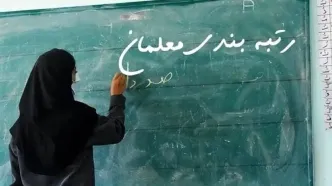 A
رتبه بندی معلمان